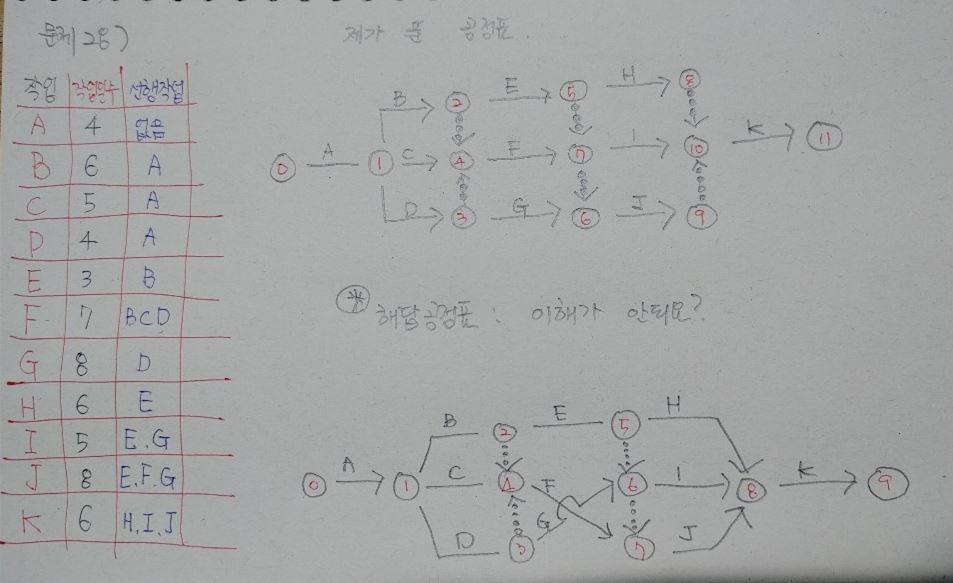 문제 28)
제가 푼 공정표.
작업 작업일수 선행작업
A 4 없음
B 6 A
C 5 A
D 4 A
E 3 B
F 7 BCD
G 8 D
H 6 E
I 5 E.G
J 8 E.F.G
K 6 H.I.J
B E H
2 5 8
A C F I K
0 1 4 7 10 11
D G J
3 6 9
* 해답공정표 : 이해가 안되요?
B E H
2 5
A C F I K
0 1 4 6 8 9
D G J
3 7